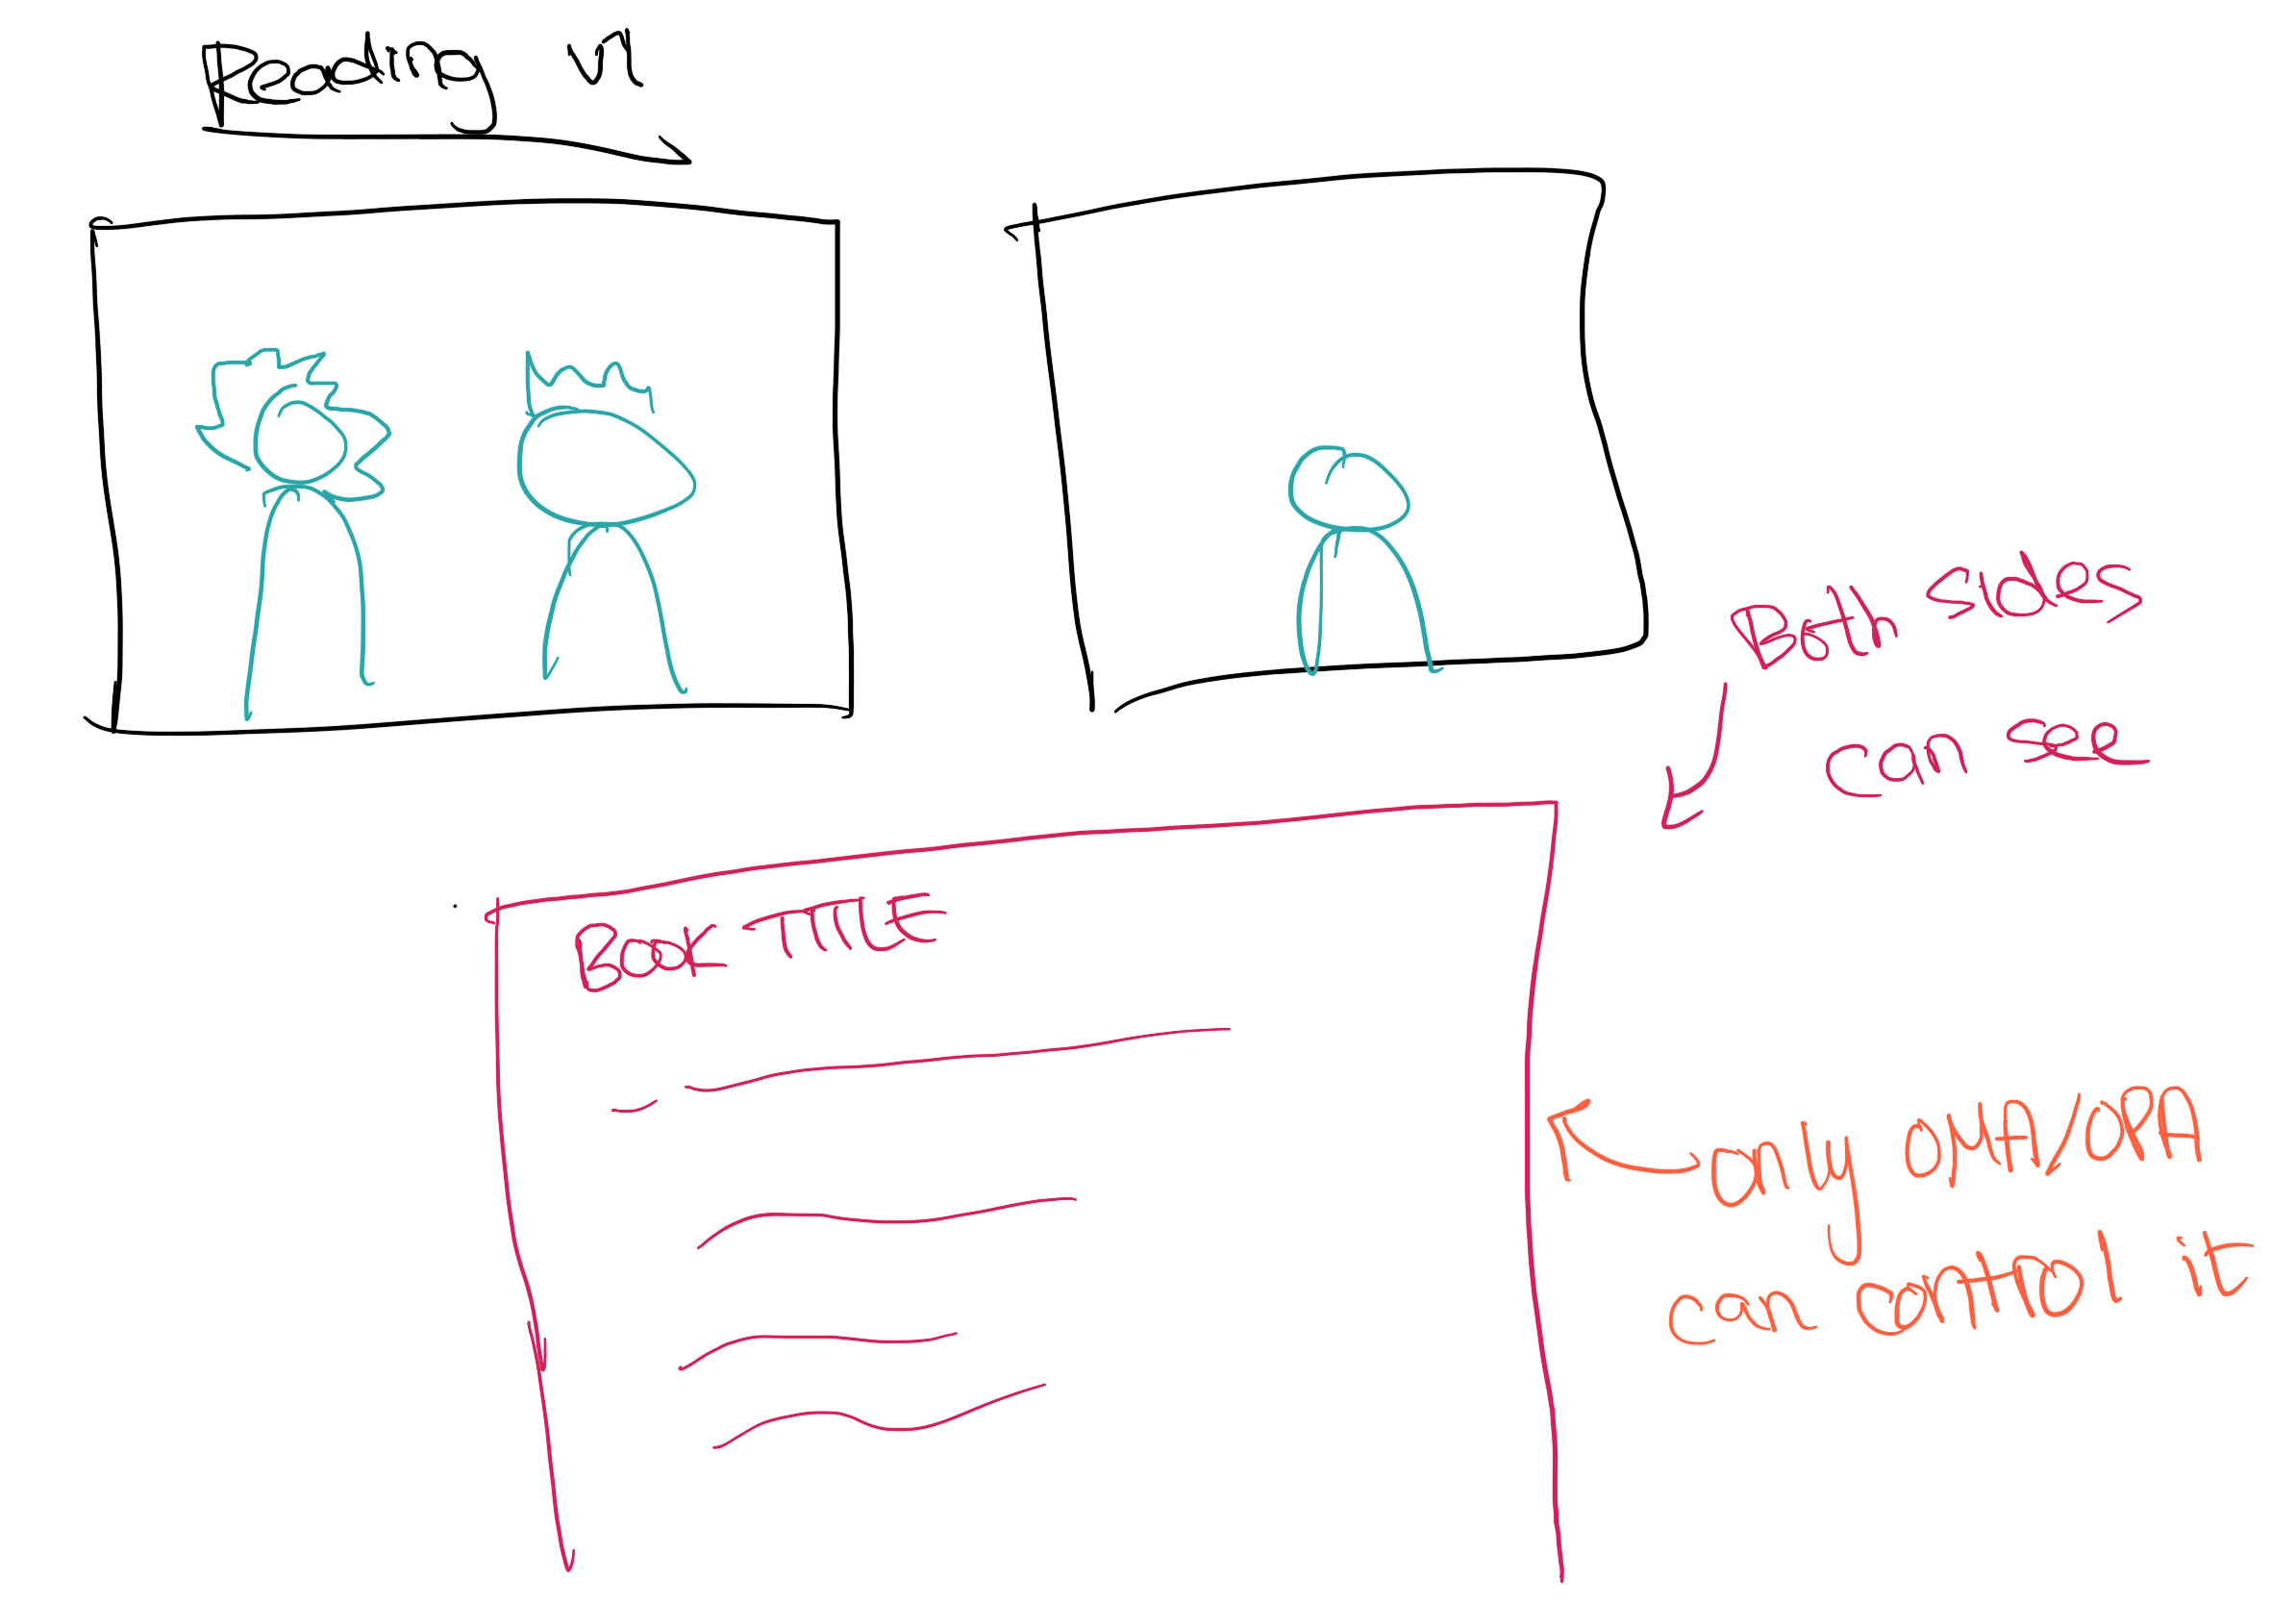 Reading
Both sides
can see
BOOK TITLE
only OMA/OPA
can control it